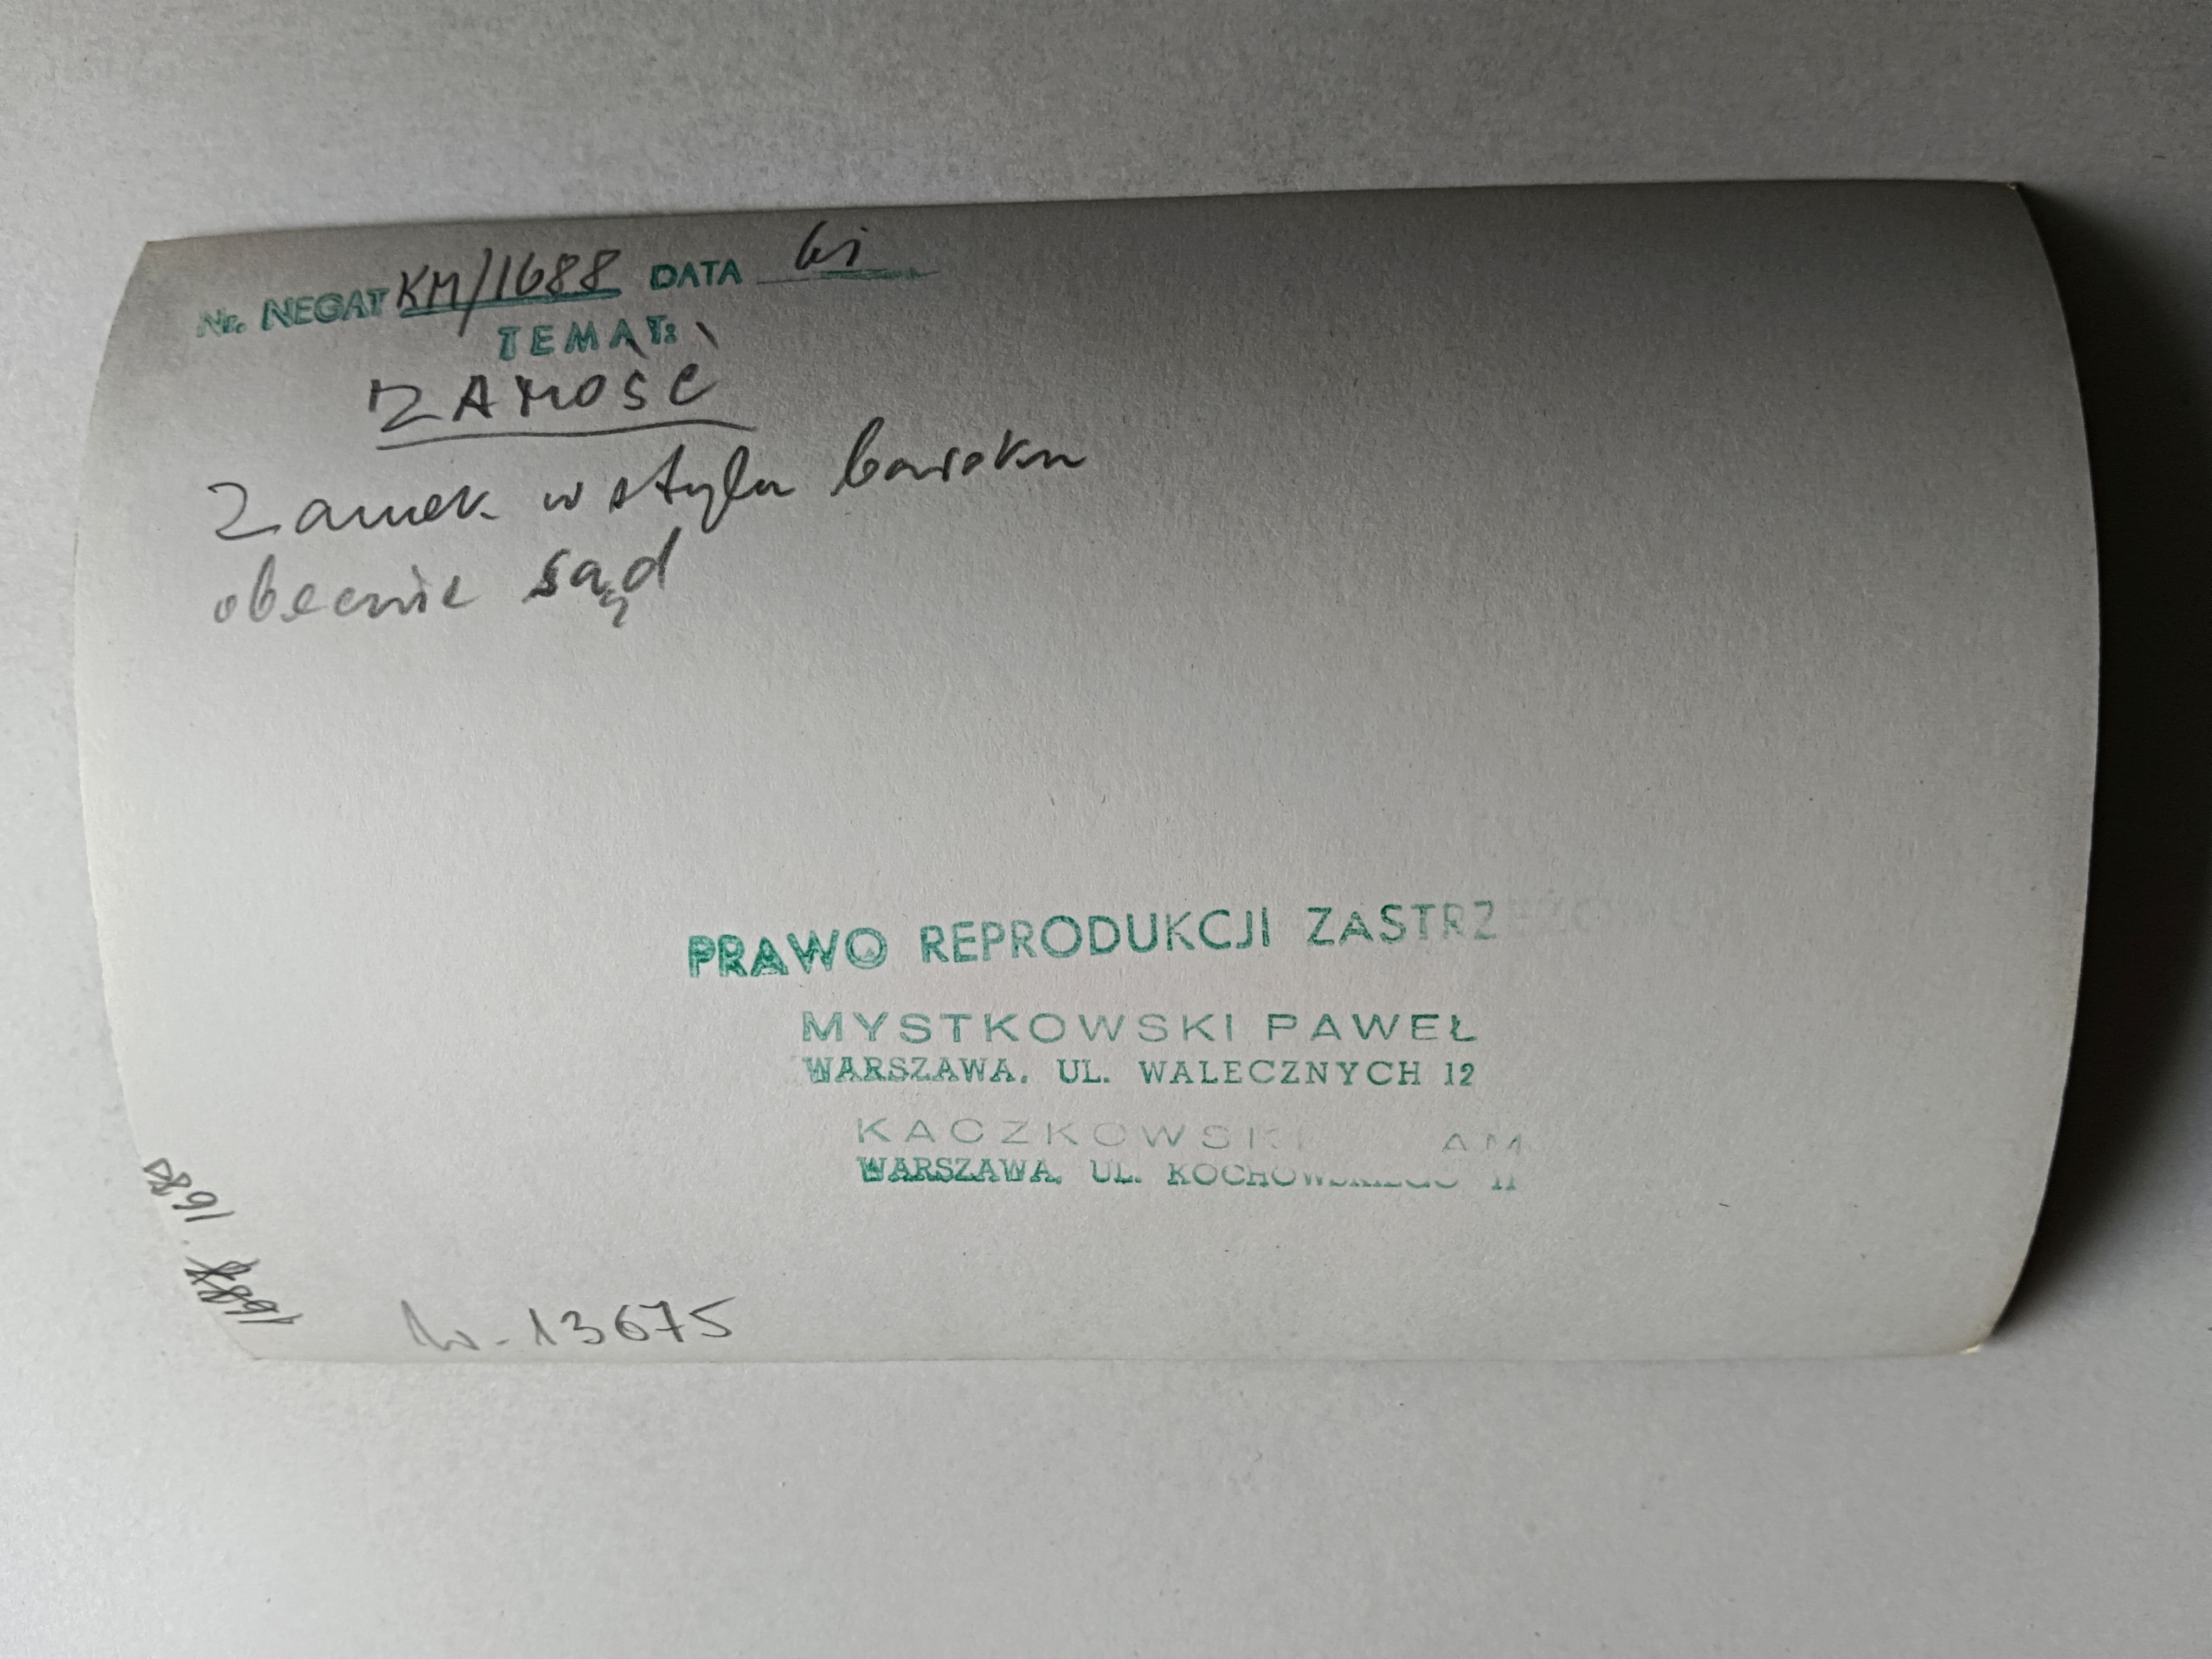 Nr. NEGAT KM/1688 DATA
TEMAT:
ZAMOŚĆ
Zamek w stylu baroku
obecnie sąd
PRAWO REPRODUKCJI ZASTRZEŻO
MYSTKOWSKI PAWEŁ
WARSZAWA, UL. WALECZNYCH 12
KACZKOWSKI AM
WARSZAWA, UL. KOCHOWSKIEGO 11
1688
1688
13675